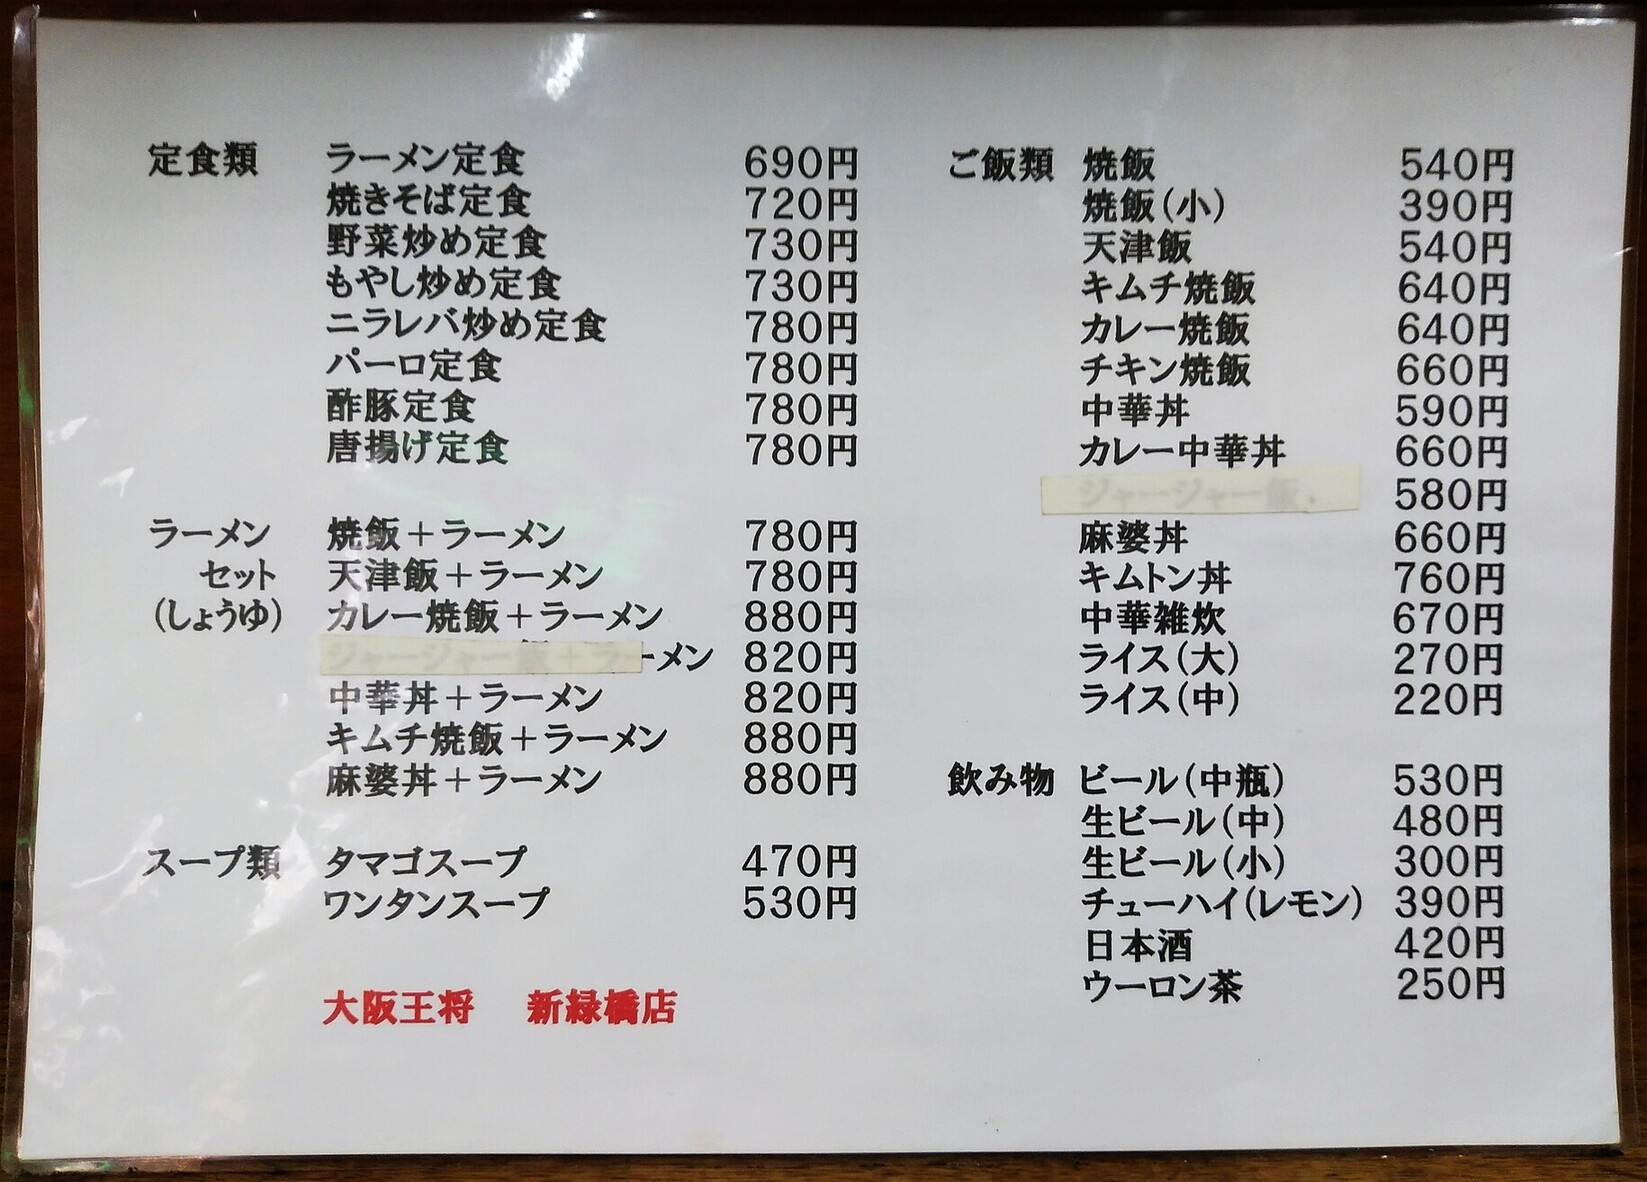 定食類 ラーメン定食 690円
焼きそば定食 720円
野菜炒め定食 730円
もやし炒め定食 730円
ニラレバ炒め定食 780円
パーロ定食 780円
酢豚定食 780円
唐揚げ定食 780円
ラーメン 焼飯+ラーメン 780円
セット 天津飯+ラーメン 780円
(しょうゆ) カレー焼飯+ラーメン 880円
ジャージャー飯+ラーメン 820円
中華丼+ラーメン 820円
キムチ焼飯+ラーメン 880円
麻婆丼+ラーメン 880円
スープ類 タマゴスープ 470円
ワンタンスープ 530円
大阪王将 新緑橋店
ご飯類 焼飯 540円
焼飯(小) 390円
天津飯 540円
キムチ焼飯 640円
カレー焼飯 640円
チキン焼飯 660円
中華丼 590円
カレー中華丼 660円
ジャージャー飯 580円
麻婆丼 660円
キムトン丼 760円
中華雑炊 670円
ライス(大) 270円
ライス(中) 220円
飲み物 ビール(中瓶) 530円
生ビール(中) 480円
生ビール(小) 300円
チューハイ(レモン) 390円
日本酒 420円
ウーロン茶 250円